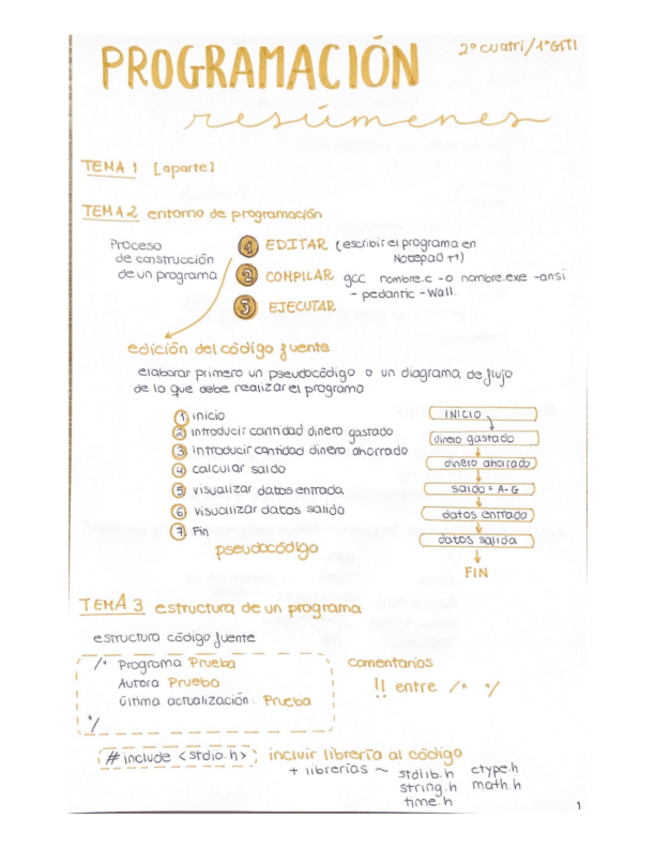 PROGRAMACIÓN
2º cuatri/1º GITI
resúmenes
TEMA 1 [aparte]
TEMA 2 entorno de programación
Proceso
de construcción
de un programa
1 EDITAR (escribir el programa en
Notepad ++)
2 COMPILAR gcc nombre.c -o nombre.exe -ansi
- pedantic - Wall.
3 EJECUTAR
edición del código fuente
elaborar primero un pseudocódigo o un diagrama de flujo
de lo que debe realizar el programa
1 inicio
2 introducir cantidad dinero gastado
3 introducir cantidad dinero ahorrado
4 calcular saldo
5 visualizar datos entrada
6 visualizar datos salida
7. Fin
pseudocódigo
INICIO
dinero gastado
dinero ahorrado
saldo = A-G
datos entrada
datos salida
FIN
TEMA 3 estructura de un programa
estructura código fuente
/* Programa Prueba
Autora Prueba
última actualización: Prueba
*/
comentarios
!! entre /* */
# include <stdio.h> incluir librería al código
+ librerías ~ stdlib.h ctype.h
string.h math.h
time.h
1